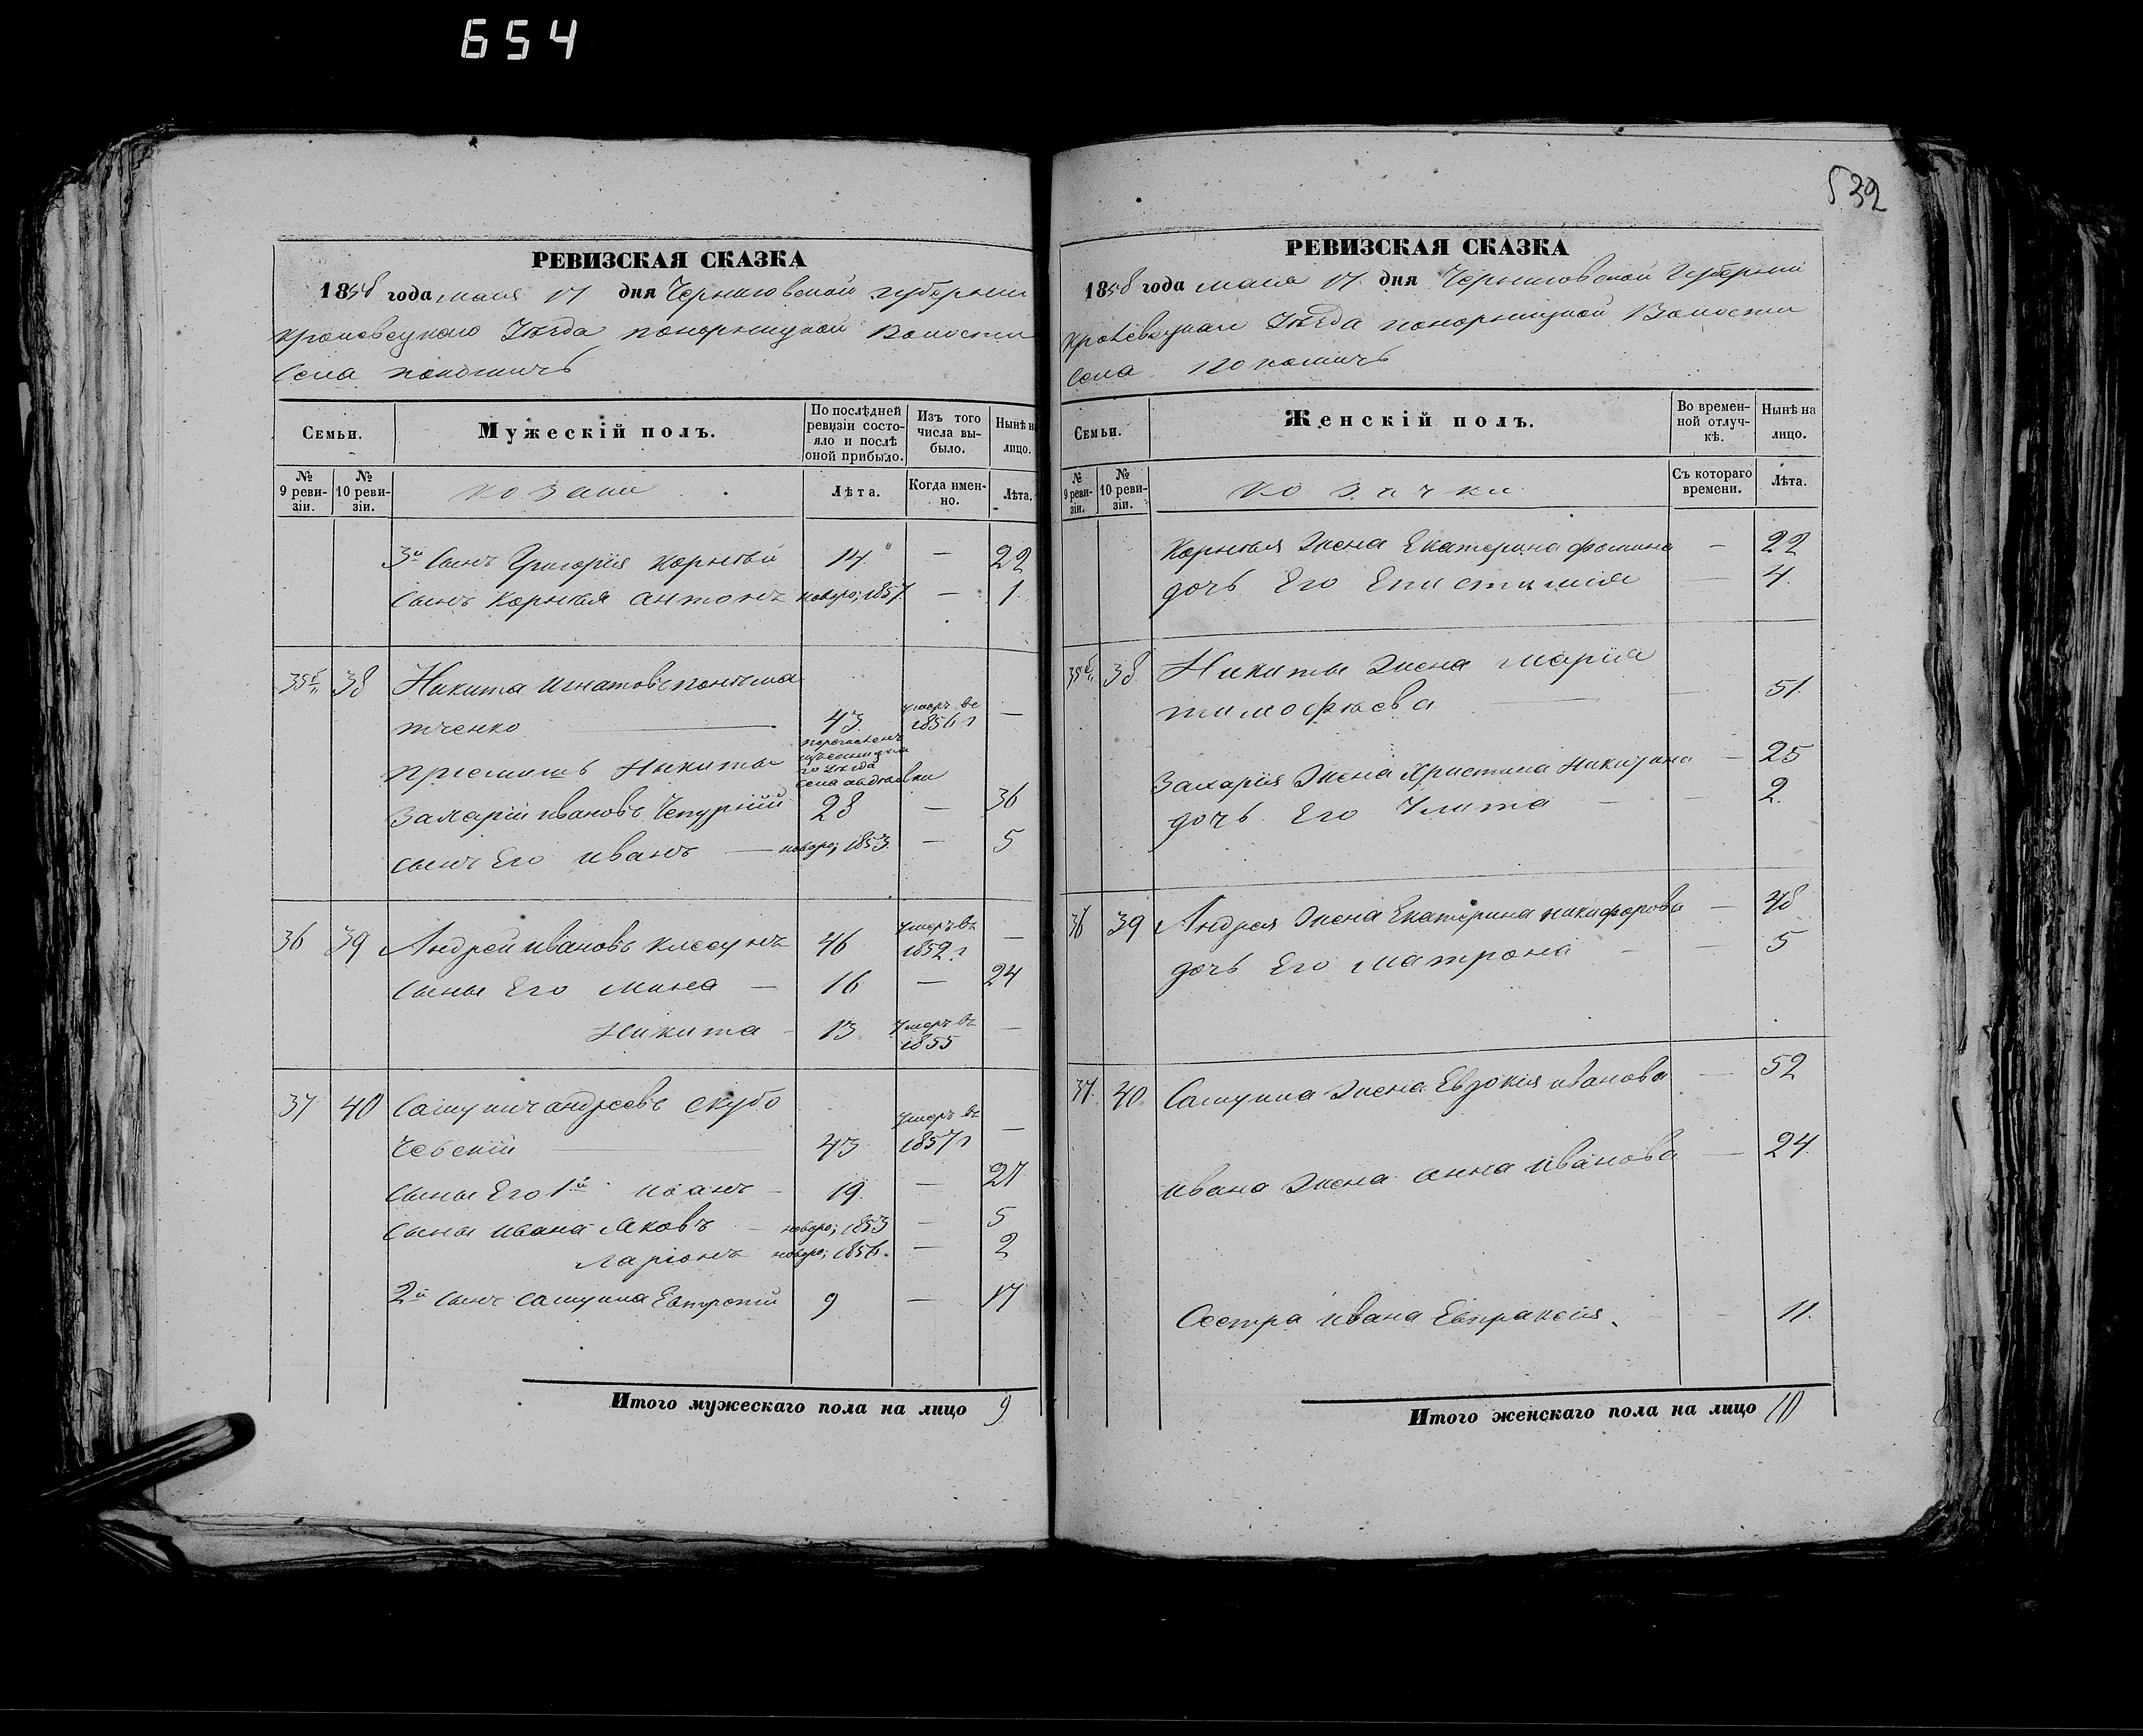 654
532
РЕВИЗСКАЯ СКАЗКА
1858 года мая 17 дня Черниговской губернии
Кролевецкаго Уѣзда понорницкой Волости
Села покошичь
Семьи.
Мужескій полъ.
По послѣдней ревизіи состояло и послѣ оной прибыло.
Изъ того числа выбыло.
Нынѣ на лицо.
№ 9 ревизіи.
№ 10 ревизіи.
козаки
Лѣта.
Когда именно.
Лѣта.
3й Сынъ Григорія Корнѣй 14 — 22
Сынъ Корнѣя Антонъ новоро; 1857 — 1
35 38 Никита Игнатовъ
тченко — 43 умеръ въ 1856 г —
пріемышъ Никиты перечисленъ
уѣзда
Села
Захарій Ивановъ Чепурній 28 — 36
сынъ Его Иванъ — новоро; 1853 — 5
36 39 Андрей Ивановъ 46 умеръ въ 1852 г —
Сыны Его Мина — 16 — 24
Никита — 13 умеръ въ 1855 —
37 40 Самуилъ Андреевъ Скубо
чевскій — 43 умеръ въ 1857 г —
Сыны Его 1й Иванъ — 19 — 27
Сыны Ивана Яковъ — новоро; 1853 — 5
Ларіонъ новоро; 1856 — 2
2й Сынъ Самуила Евтропій 9 — 17
Итого мужескаго пола на лицо 9
РЕВИЗСКАЯ СКАЗКА
1858 года мая 17 дня Черниговской Губерніи
Кролевецкаго Уѣзда понорницкой Волости
Села покошичь
Семьи.
Женскій полъ.
Во временной отлучкѣ.
Нынѣ на лицо.
№ 9 ревизіи.
№ 10 ревизіи.
козачки
Съ котораго времени.
Лѣта.
Корнѣя Жена Екатерина Фомина — 22
дочь Его Епистимія — 4
35 38 Никиты Жена Марія
тимофѣева — 51
Захарія Жена Христина Никитина — 25
дочь Его Улита — 2
36 39 Андрея Жена Екатерина никифорова — 48
дочь Его Матрона — 5
37 40 Самуила Жена Евдокія иванова — 52
Ивана Жена Анна Иванова — 24
Сестра Ивана Евпраксія — 11
Итого женскаго пола на лицо 10